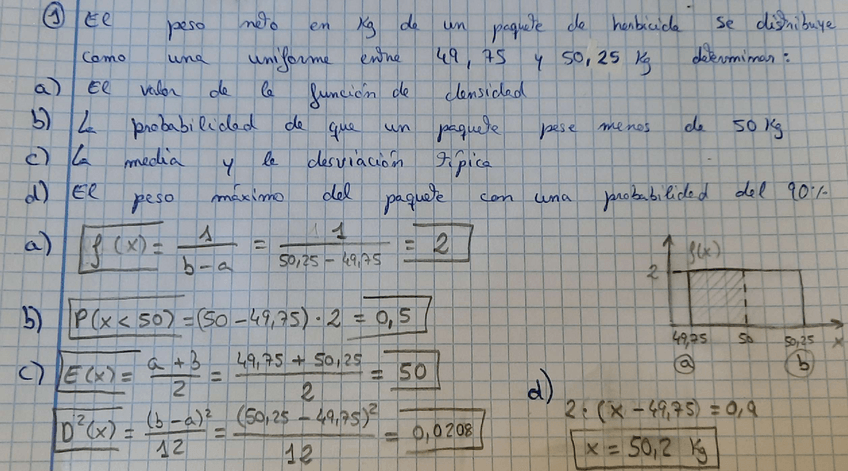 ① El peso neto en Kg de un paquete de herbicida se distribuye
como una uniforme entre 49,75 y 50,25 Kg determinar:
a) El valor de la función de densidad
b) La probabilidad de que un paquete pese menos de 50 Kg
c) La media y la desviación típica
d) El peso máximo del paquete con una probabilidad del 90%
a) f(x) = 1/(b-a) = 1/(50,25 - 49,75) = 2
b) P(x < 50) = (50 - 49,75) · 2 = 0,5
c) E(x) = (a + b)/2 = (49,75 + 50,25)/2 = 50
D²(x) = (b-a)²/12 = (50,25 - 49,75)²/12 = 0,0208
f(x)
2
49,75 50 50,25 x
a b
d) 2 · (x - 49,75) = 0,9
x = 50,2 Kg